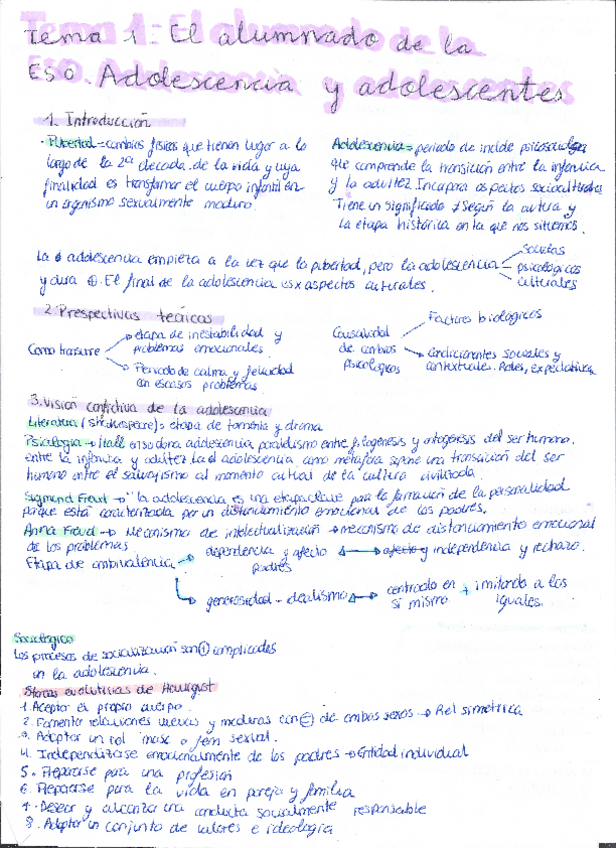 Tema 1: El alumnado de la
ESO. Adolescencia y adolescentes
1. Introducción
· Pubertad = cambios físicos que tienen lugar a lo
largo de la 2ª decada de la vida y cuya
finalidad es transformar el cuerpo infantil en
un organismo sexualmente maduro.
Adolescencia = periodo de índole psicosocial
que comprende la transición entre la infancia
y la adultez. Incorpora aspectos socioculturales
Tiene un significado ≠ según la cultura y
la etapa histórica en la que nos situemos.
La adolescencia empieza a la vez que la pubertad, pero la adolescencia
y dura ⊕. El final de la adolescencia es x aspectos culturales.
Sociales
psicológicos
culturales
2. Prespectivas teóricas
Como transcurre
etapa de inestabilidad y
problemas emocionales
Periodo de calma y felicidad
con escasos problemas
Causalidad
de cambios
psicológicos
Factores biológicos
Condicionantes sociales y
contextuales. Roles, expectativas
3. Visión conflictiva de la adolescencia
Literatura (Shakespeare) = etapa de tormenta y drama
Psicología → Hall en su obra adolescencia paralelismo entre filogénesis y ontogénesis del ser humano.
entre la infancia y adultez. La adolescencia como metáfora supone una transición del ser
humano entre el salvajismo al momento actual de la cultura civilizada.
Sigmund Freud → "la adolescencia es una etapa clave para la formación de la personalidad
porque está caracterizada por un distanciamiento emocional de los padres.
Anna Freud → Mecanismo de intelectualización → mecanismo de distanciamiento emocional
de los problemas
Etapa de ambivalencia → dependencia y afecto ↔ afecto y independencia y rechazo.
padres
generosidad - idealismo ↔ centrado en + imitando a los
sí mismo iguales.
Sociológico
Los procesos de socialización son complicados
en la adolescencia.
evolutivas de
1. Aceptar el propio cuerpo.
2. Fomentar relaciones nuevas y maduras con = de ambos sexos → Rel simétrica
3. Adoptar un rol masc o fem sexual.
4. Independizarse emocionalmente de los padres → Entidad individual
5. Prepararse para una profesión
6. Prepararse para la vida en pareja y familia
7. Desear y alcanzar una conducta socialmente responsable
8. Adoptar un conjunto de valores e ideología